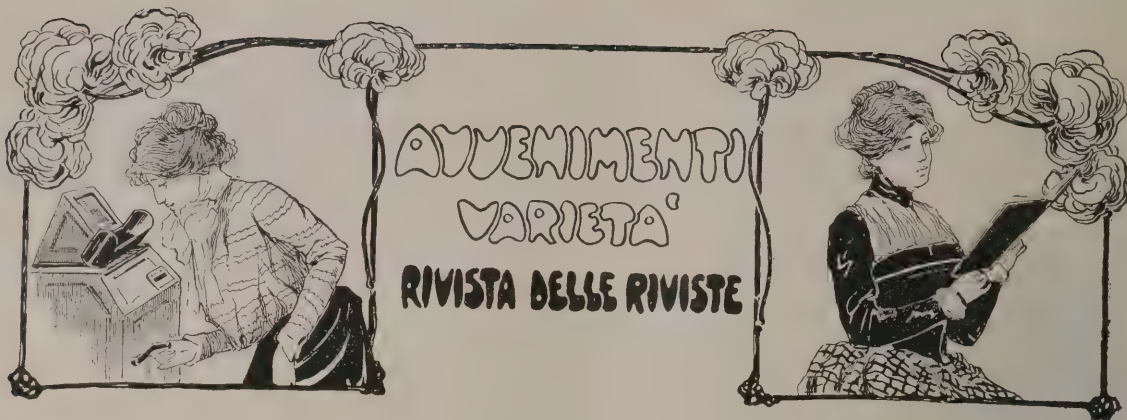 AVVENIMENTI
VARIETA'
RIVISTA DELLE RIVISTE